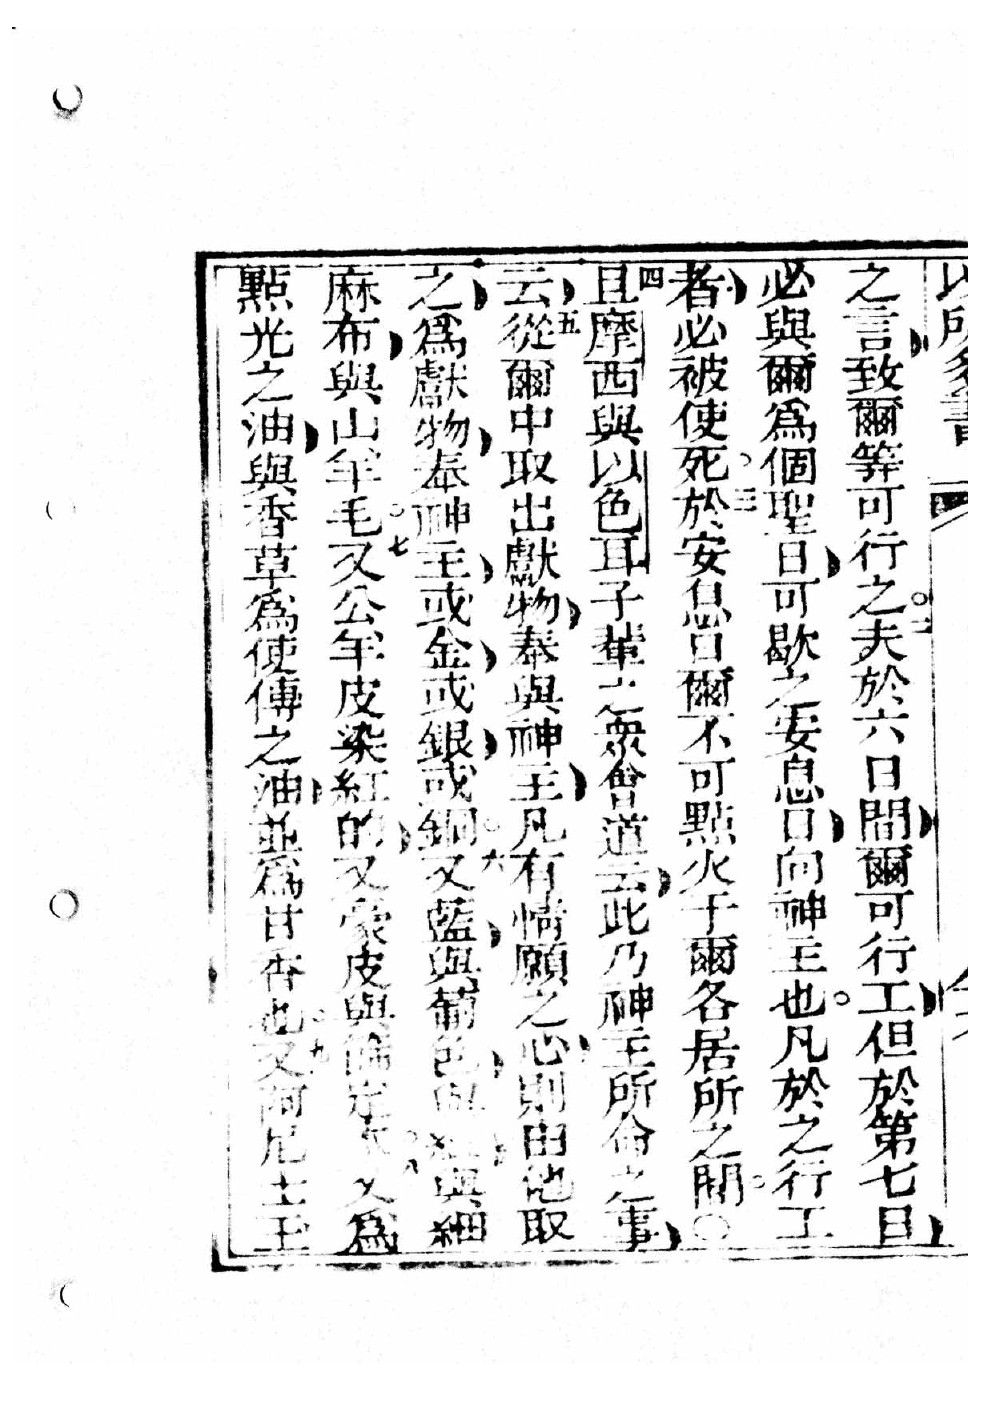 所多書
之言致爾等可行之○二夫於六日間爾可行工但於第七日
必與爾爲個聖日可歇之安息日向神主也○凡於之行工
者必被使死○三於安息日爾不可點火于爾各居所之間○○
四且摩西與以色耳子輩之衆會道云此乃神主所命之事
云五從爾中取出獻物奉與神主凡有情願之心則由他取
之爲獻物奉神主或金或銀或銅○六又藍與葡色與紅與細
麻布與山羊毛○七又公羊皮染紅的又蒙皮與 ○八又爲
點光之油與香草爲使傅之油並爲甘香也○九又阿尼 玉